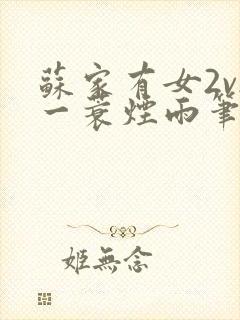 蘇家有女2v
一蓑煙雨筆
姬無念